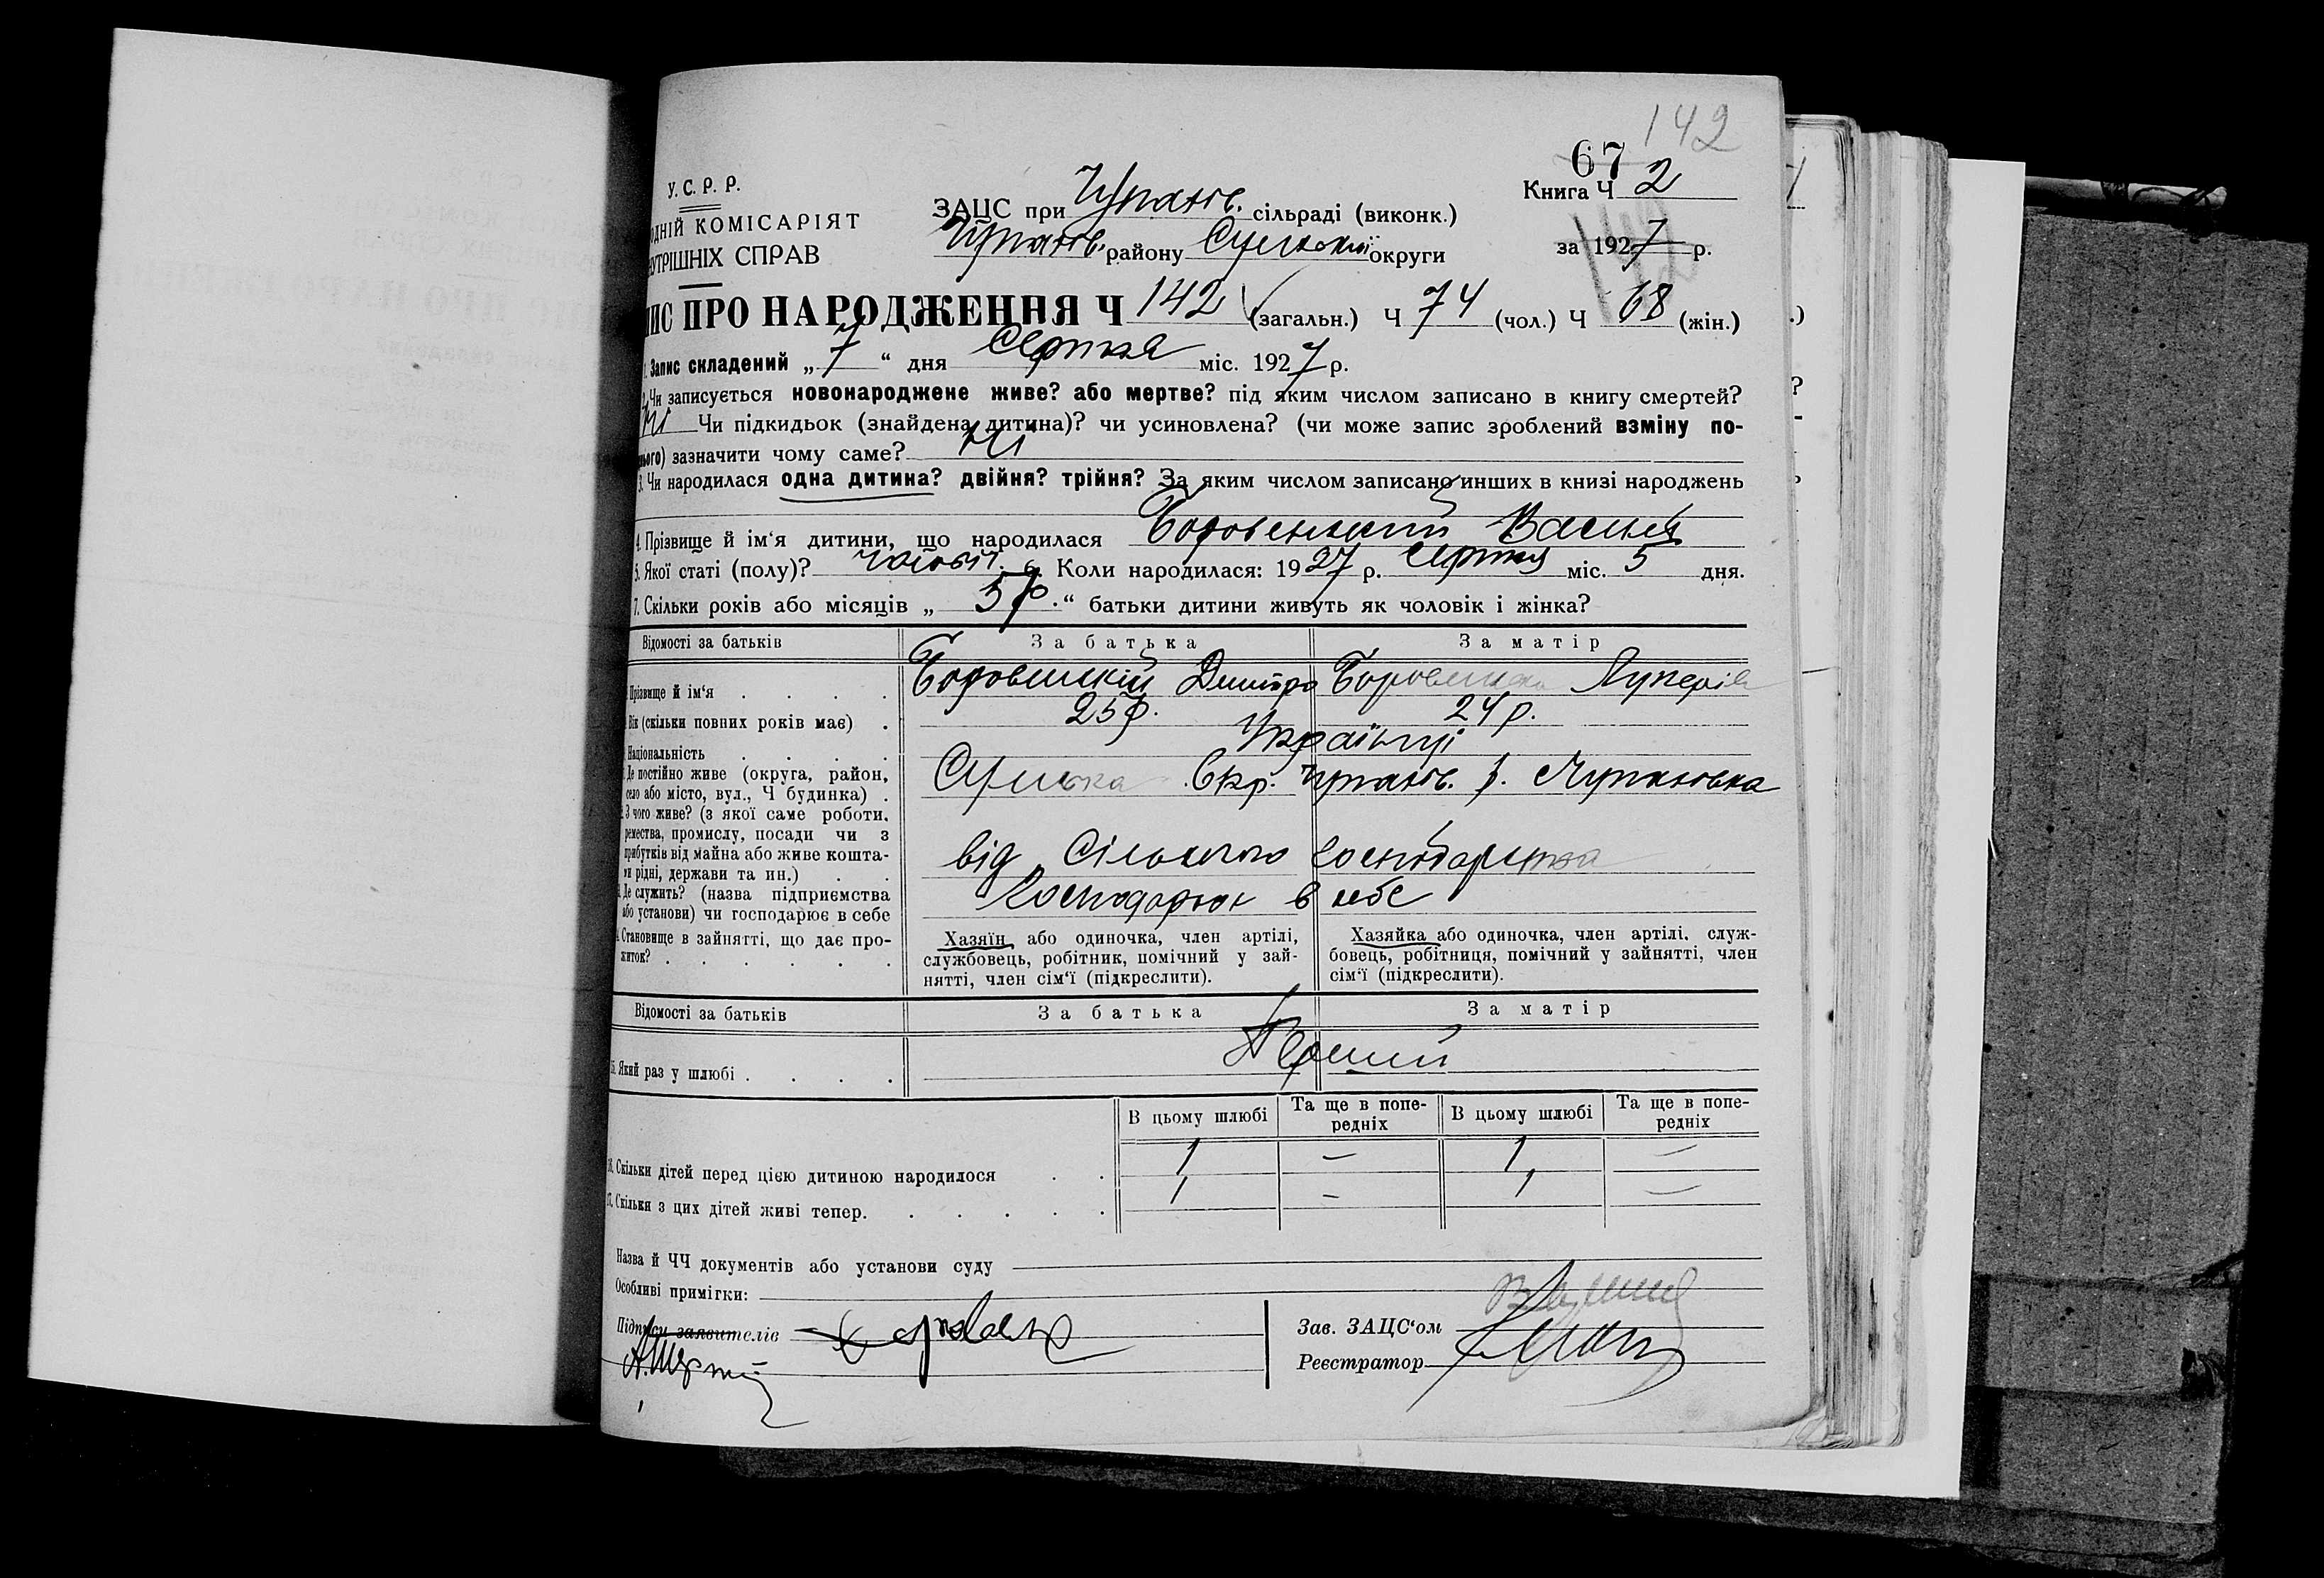 142
67
У. С. Р. Р.
Книга Ч 2
ЗАЦС при Чупахів. сільраді (виконк.)
ОДНІЙ КОМІСАРІЯТ
Чупахів. району Сумської округи
за 1927 р.
142
УТРІШНІХ СПРАВ
ИС ПРО НАРОДЖЕННЯ Ч 142 (загальн.) Ч 74 (чол.) Ч 68 (жін.)
1. Запис складений „ 7 “ дня Серпня міс. 1927 р.
2. Чи записується новонароджене живе? або мертве? під яким числом записано в книгу смертей?
Ні Чи підкидьок (знайдена дитина)? чи усиновлена? (чи може запис зроблений взміну по-
нього) зазначити чому саме? Ні
3. Чи народилася одна дитина? двійня? трійня? За яким числом записано инших в книзі народжень
4. Прізвище й ім'я дитини, що народилася Боровенський Василь
5. Якої статі (полу)? чоловіч. 6. Коли народилася: 1927 р. Серпня міс. 5 дня.
7. Скільки років або місяців „ 5 р. “ батьки дитини живуть як чоловік і жінка?
Відомості за батьків За батька За матір
Прізвище й ім'я . . . . Дмитро Лукерія
Вік (скільки повних років має) . 25 р. 24 р.
Національність . . . . Українці
Де постійно живе (округа, район, село або місто, вул., Ч будинка) . Сумська Окр. Чупахів. р. Чупахівка
З чого живе? (з якої саме роботи,
ремества, промислу, посади чи з
прибутків від майна або живе кошта-
ми рідні, держави та ин.) . . від сільського господарства
Де служить? (назва підприємства
або установи) чи господарює в себе Господарюю в себе
Становище в зайнятті, що дає про-
житок? . . . . . .
Хазяїн, або одиночка, член артілі,
службовець, робітник, помічний у зай-
нятті, член сім'ї (підкреслити).
Хазяйка або одиночка, член артілі, служ-
бовець, робітниця, помічний у зайнятті, член
сім'ї (підкреслити).
Відомості за батьків За батька За матір
15. Який раз у шлюбі . . . . Перший
В цьому шлюбі Та ще в попе-редніх В цьому шлюбі Та ще в попе-редніх
16. Скільки дітей перед цією дитиною народилося . . 1 — 1 —
17. Скільки з цих дітей живі тепер. . . . . . 1 — 1 —
Назва й ЧЧ документів або установи суду
Особливі примігки:
Підписи заявителів
Зав. ЗАЦС'ом
Реєстратор